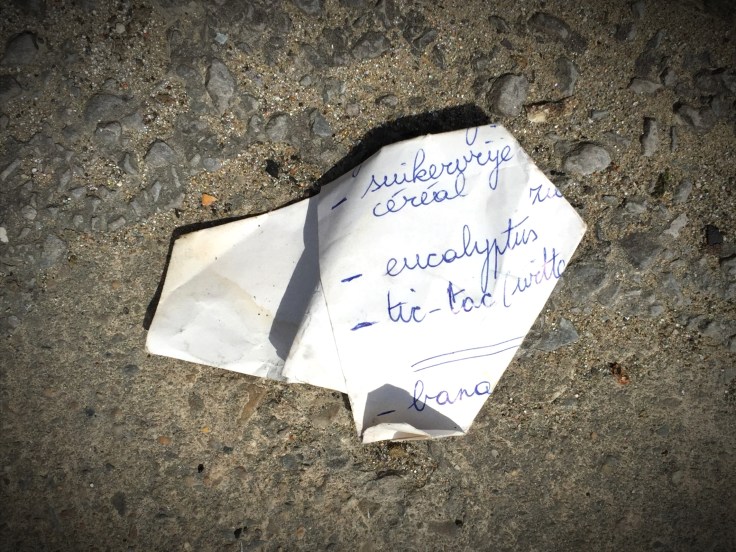 - suikervrije
céréal
- eucalyptus
- tic-tac (witte
- bana